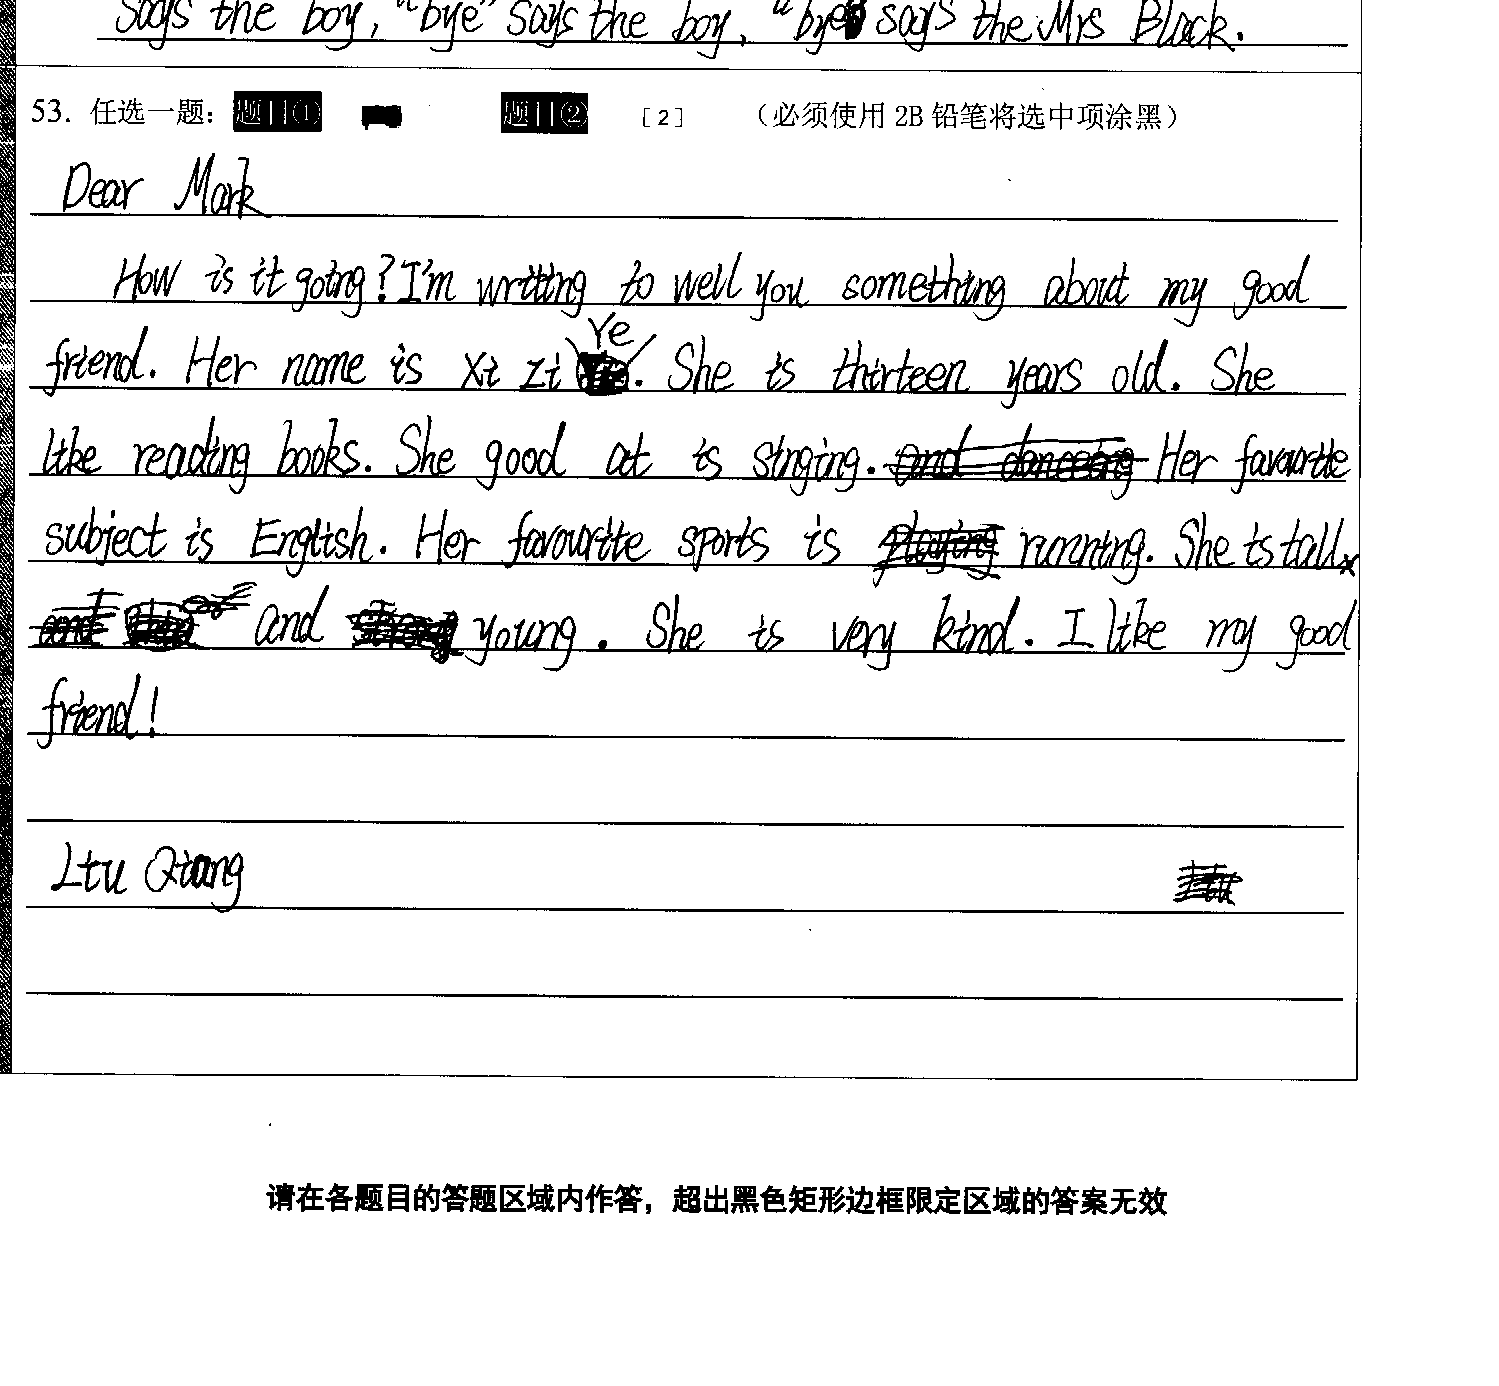 says the boy, "bye" says the boy, "bye says the Mrs Black.
53. 任选一题: 题目① 题目② [2] (必须使用 2B 铅笔将选中项涂黑)
Dear Mark
How is it going? I'm writing to well you something about my good
Ye
friend. Her name is Xi Zi . She is thirteen years old. She
like reading books. She good at is singing. and danceing Her favourite
subject is English. Her favourite sports is playing running. She is tall
and and young. She is very kind. I like my good
friend!
Liu Qiang
请在各题目的答题区域内作答，超出黑色矩形边框限定区域的答案无效